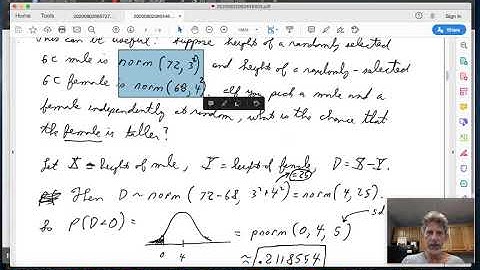 Home Tools
Sign In
This can be useful? Suppose height of a randomly selected
GC male is norm(72, 3²) and height of a randomly-selected
GC female is norm(68, 4²). If you pick a male and a
female independently at random, what is the chance that
the female is taller?
Let X = height of male, Y = height of female D = X-Y.
Then D ~ norm(72-68, 3²+4²) = norm(4, 25).
So P(D<0) = = pnorm(0, 4, 5)
sd
0 4
≈ .2118554